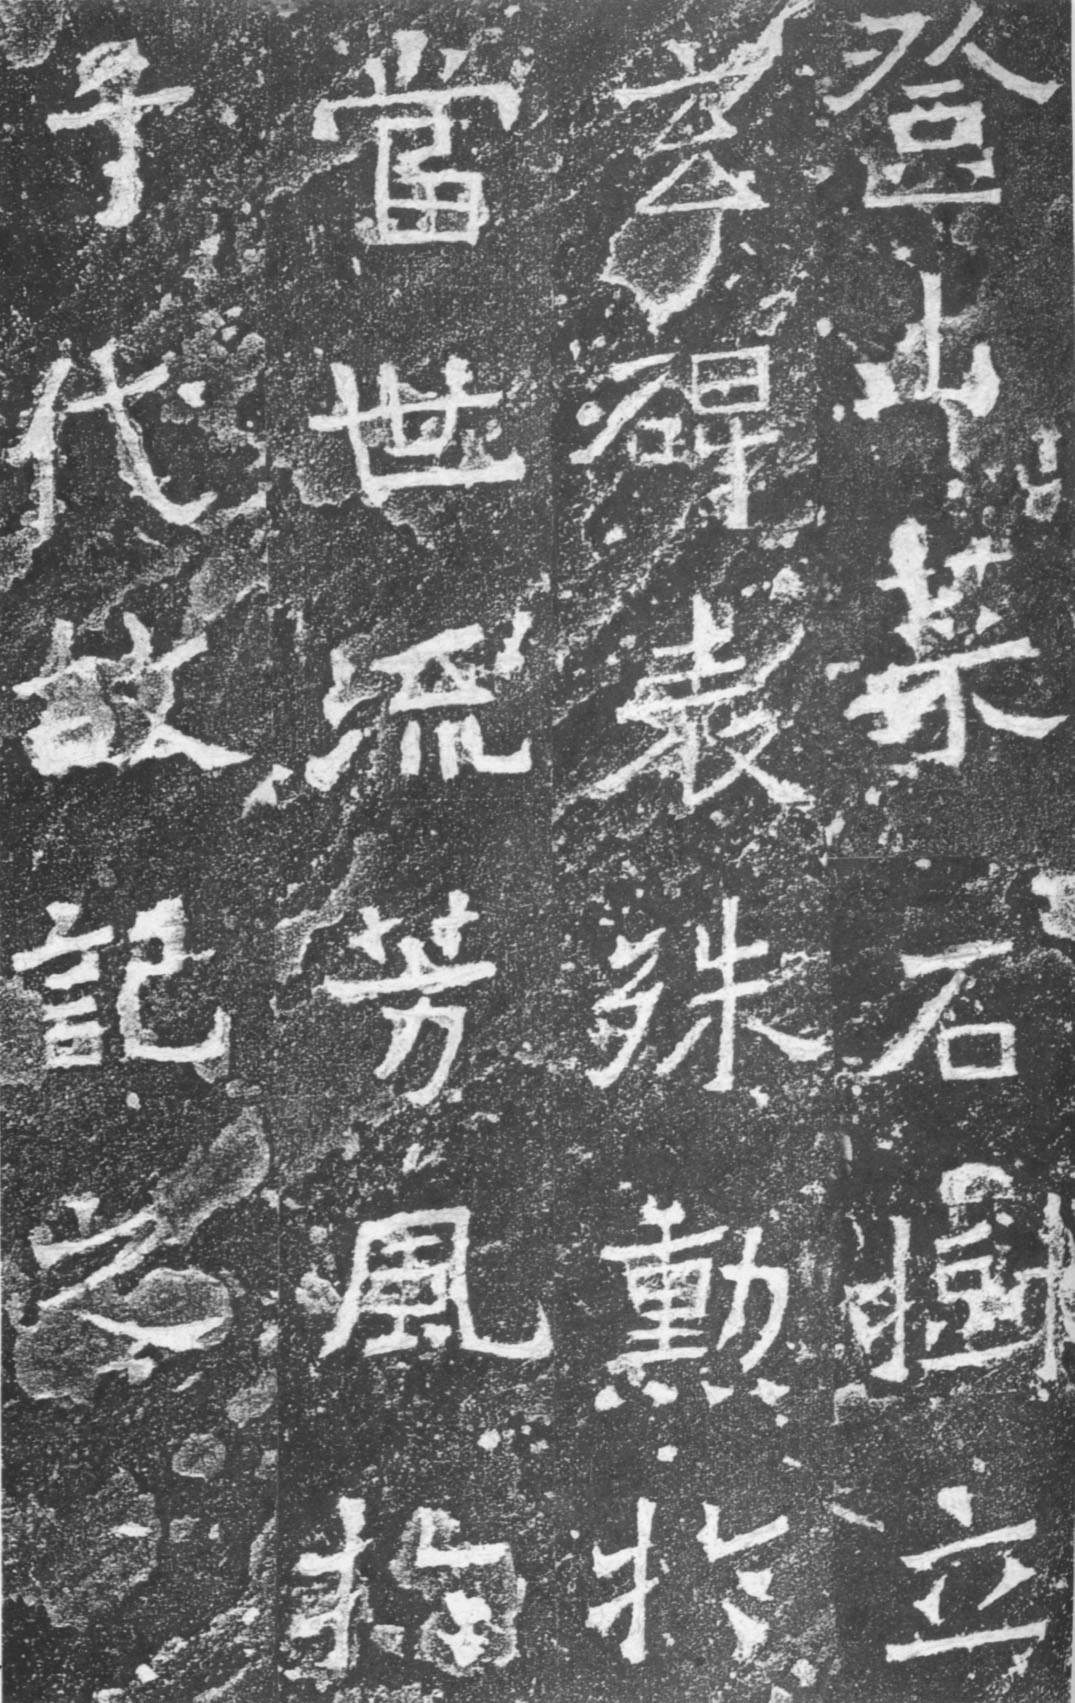 登山菜石樹立
玄碑表殊勳扵
當世流芳風扵
千代故記之